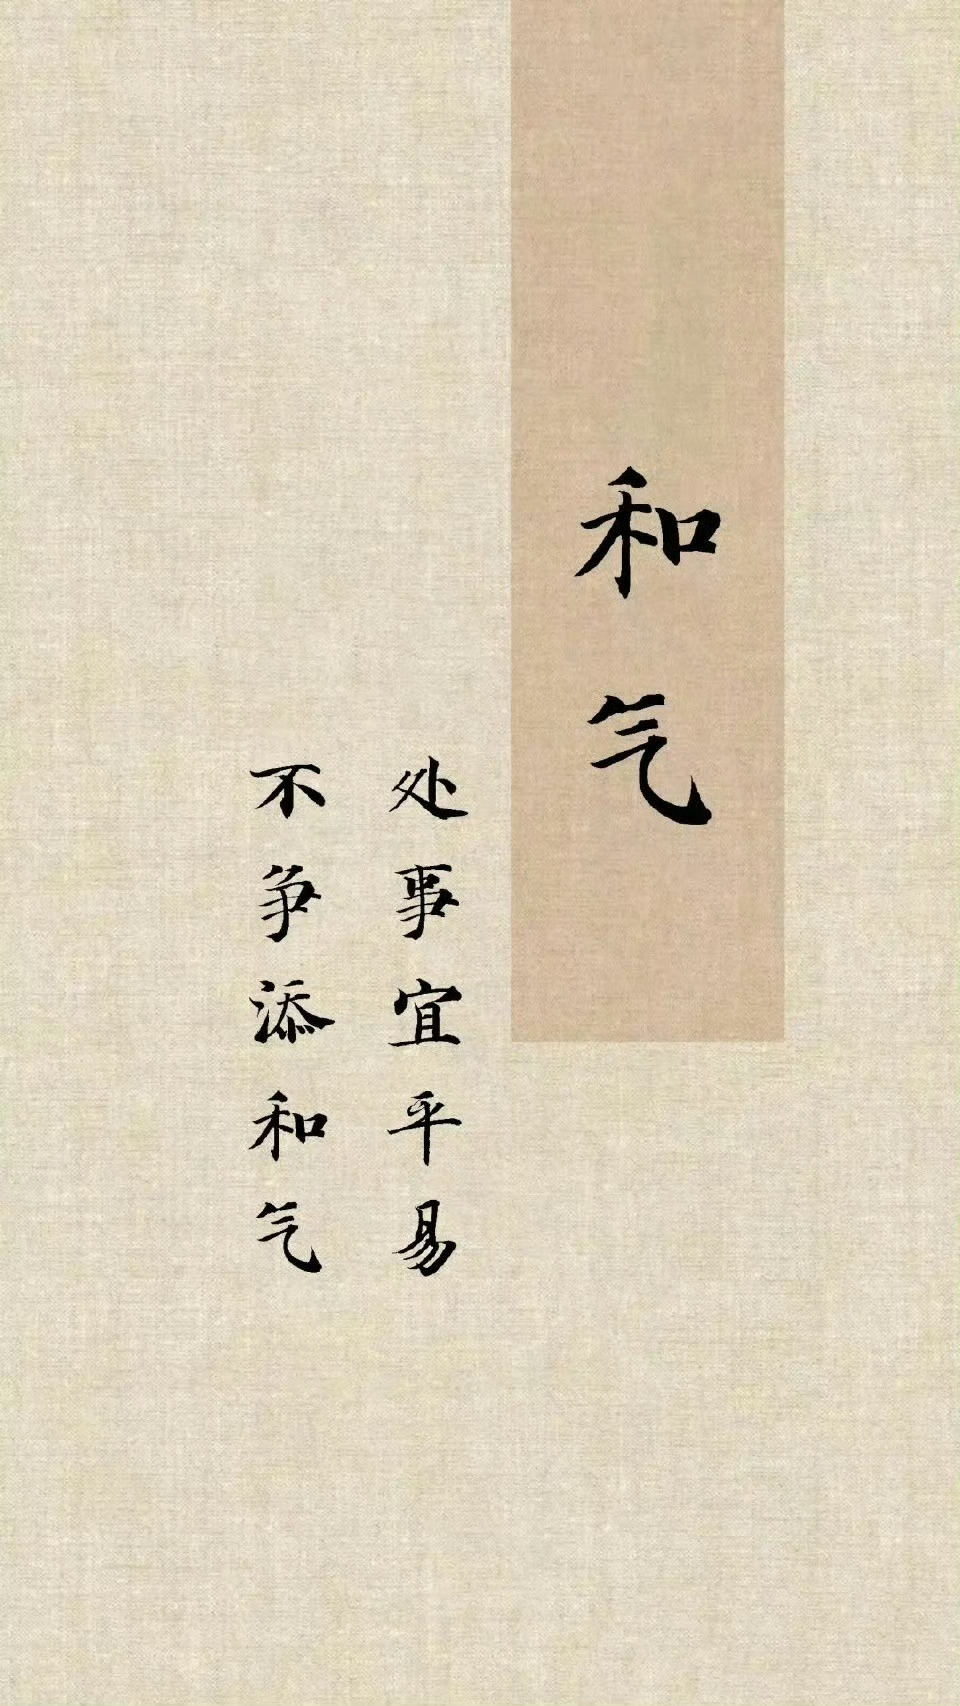 和气
处事宜平易
不争添和气